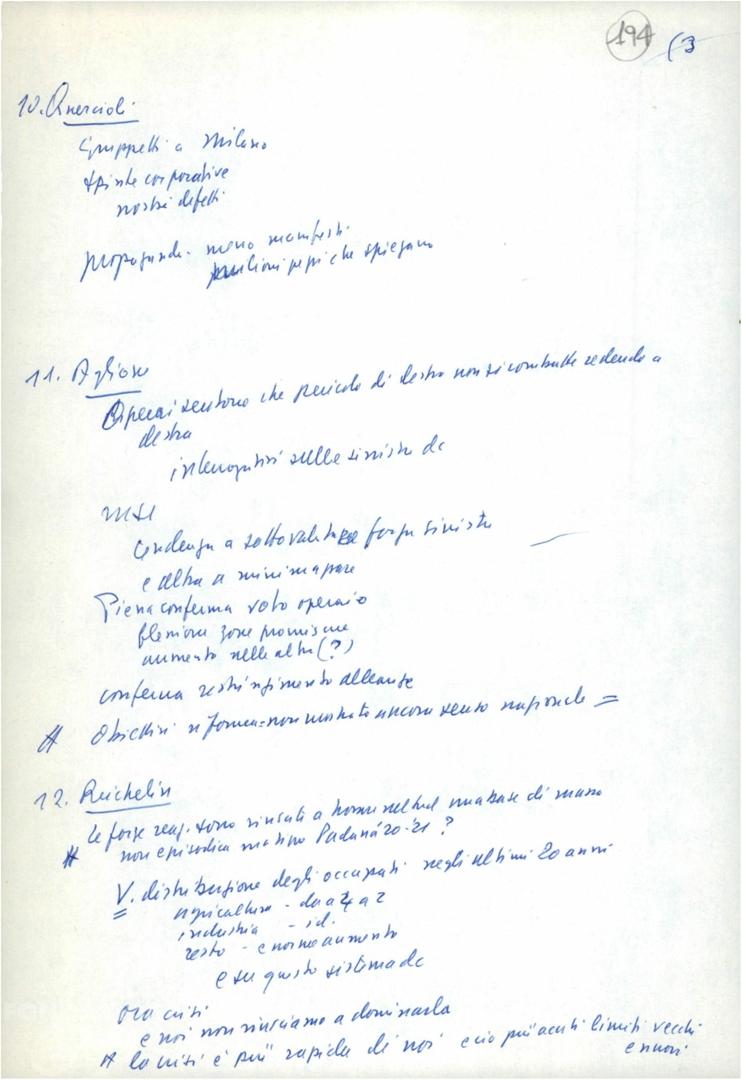 194 (3
10. Quercioli
Gruppetti a Milano
Spinte corporative
nostri difetti
propaganda. meno manifesti
milioni pepi che spiegano
11. Aglione
Operai sentono che pericolo di destra non si combatte cedendo a
destra
interrogativi sulle sinistre dc
MSI
tendenza a sottovalutare forze sinistra
e altra a minimizzare
Piena conferma voto operaio
flessioni zone promiscue
aumento nelle altre (?)
conferma restringimento alleanze
# Obiettivi riforma = non mostrato ancora senso nazionale =
12. Reichlin
Le forze reaz. sono riuscite a trovare nel Sud una base di massa
# non episodica ma tipo Padana '20-'21?
V. distribuzione degli occupati negli ultimi 20 anni
agricoltura - da a 4 a 2
industria - id.
resto - enorme aumento
e su questo sistema dc
ora crisi
e noi non riusciamo a dominarla
# la crisi è più rapida di noi e ciò più acuti limiti vecchi
e nuovi